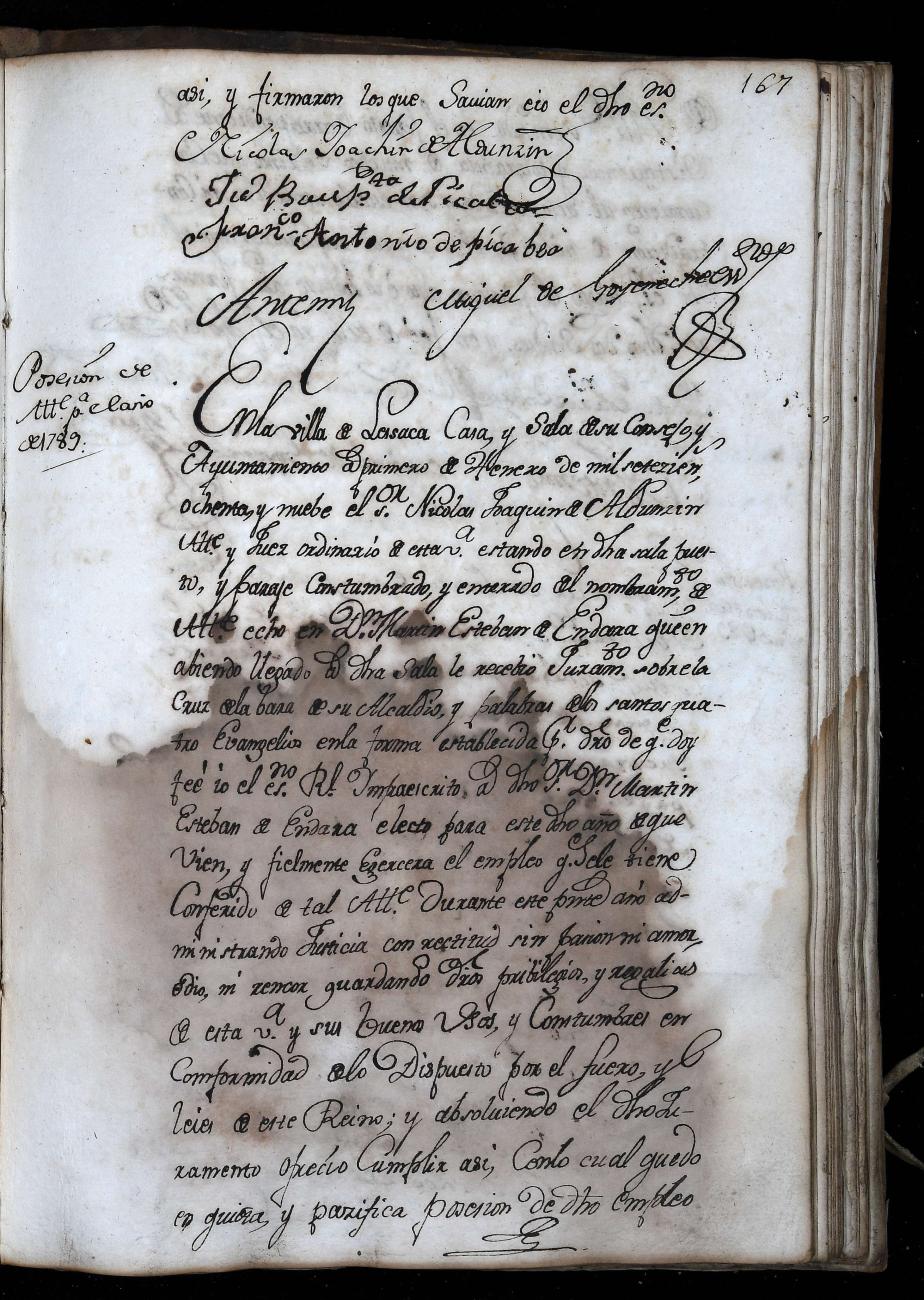 167
asi, y firmaron los que Savian eio el dho es.no
Nicolas Joachin de Aldunzin
Ju.n Baup.ta de Picabea
Fran.co Antonio de picabea
Antemi Miguel de Goyeneche es.no
Posesion de
Alt.e p.a el año
de 1789.
En la villa de Lessaca Casa, y Sala de su Consejo, y
Ayuntamiento a primero de Henero de mil setezien,
ochenta, y nuebe el s.or Nicolas Joaquin de Aldunzin
Alt.e y Juez ordinario de esta v.a estando en dha sala pues-
to, y paraje Constumbrado, y enterado del nombram.to de
Alt.e echo en D.n Martin Esteban de Endara quien
abiendo llegado a dha Sala le recebio Juram.to sobre la
Cruz de la bara de su Alcaldia, y palabras de los santos qua-
tro Evangelios en la forma establecida p.r dro de q.e doy
feé io el es.no R.l Infraescrito, a dho S.r D.n Martin
Esteban de Endara electo para este dho año de que
Vien, y fielmente Exercera el empleo q.e Sele tiene
Conferido de tal Alt.e Durante este pnte año ad-
ministrando Justicia con rectitud sin pasion ni amor
odio, ni rencor guardando dros pribilegios, y regalias
de esta v.a y sus buenos Usos, y Constumbres en
Comformidad de lo Dispuesto por el fuero, y
leies de este Reino; y absolviendo el dho Ju-
ramento ofrecio Cumplir asi, Conlo cual quedo
en quieta, y pazifica posesion de dho empleo